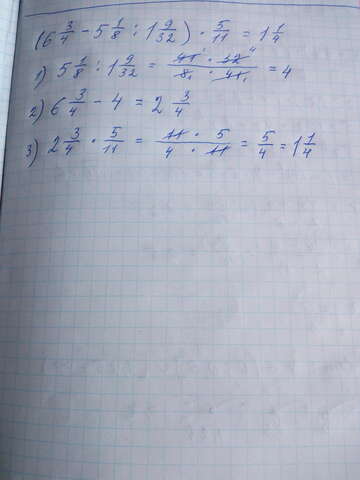 (6 3/4 - 5 1/8 : 1 9/32) · 5/11 = 1 1/4
1) 5 1/8 : 1 9/32 = 41¹ · 32⁴ / 8₁ · 41₁ = 4
2) 6 3/4 - 4 = 2 3/4
3) 2 3/4 · 5/11 = 11 · 5 / 4 · 11 = 5/4 = 1 1/4